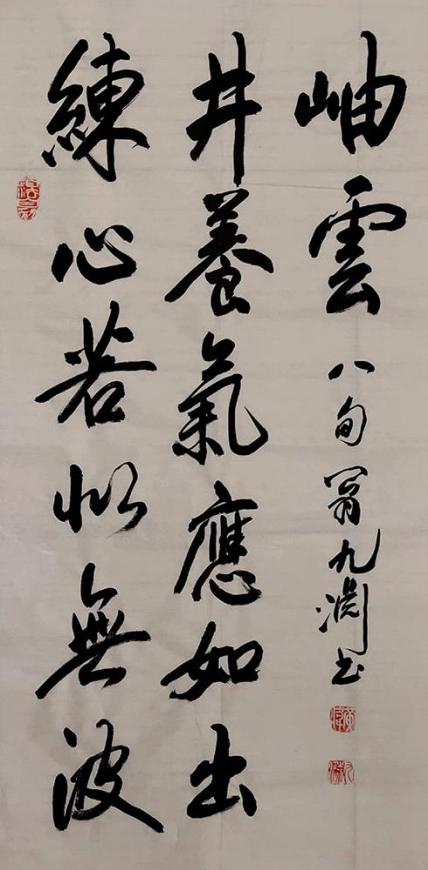 練心若似無波
井養氣應如出
岫雲 八旬翁九淵書